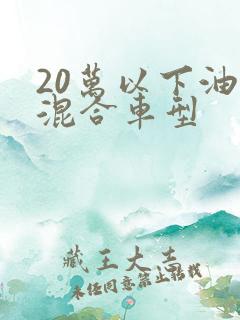 20萬以下油
混合車型
藏王大吉
未经同意禁止搭载